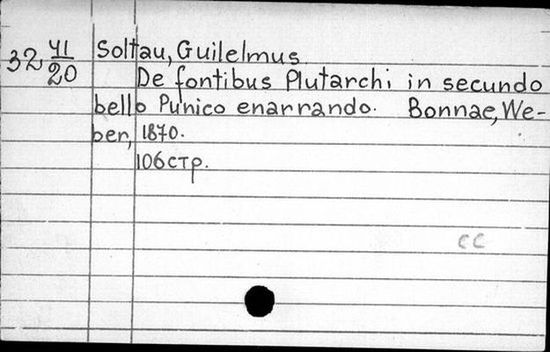 32 41/20 Soltau, Guilelmus
De fontibus Plutarchi in secundo
bello Punico enarrando. Bonnae, We-
ber, 1870.
106 стр.
CC